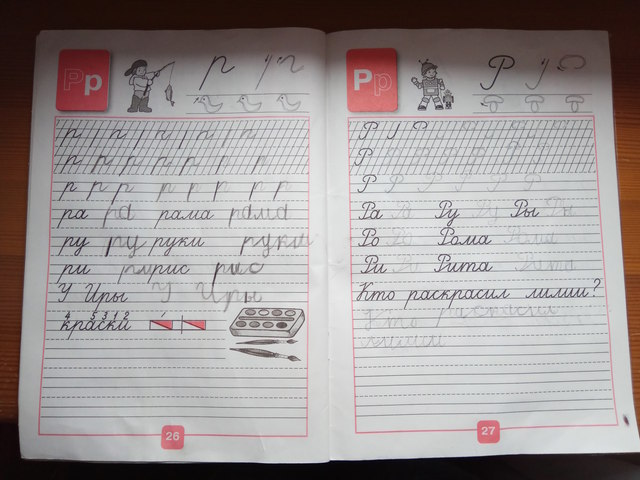 Рр
р
р р р р р
р р р р р р р р
р р р р р р р р р
ра ра рама рама
ру ру руки руки
ри ри рис рис
У Иры У Иры
4 5 3 1 2
краски
26
Рр
Р
Р Р
Р Р Р Р Р Р Р
Р Р Р Р Р Р
Ра Ра Ру Ру Ры Ры
Ро Ро Рома Рома
Ри Ри Рита Рита
Кто раскрасил лилии?
Кто раскрасил
лилии
27